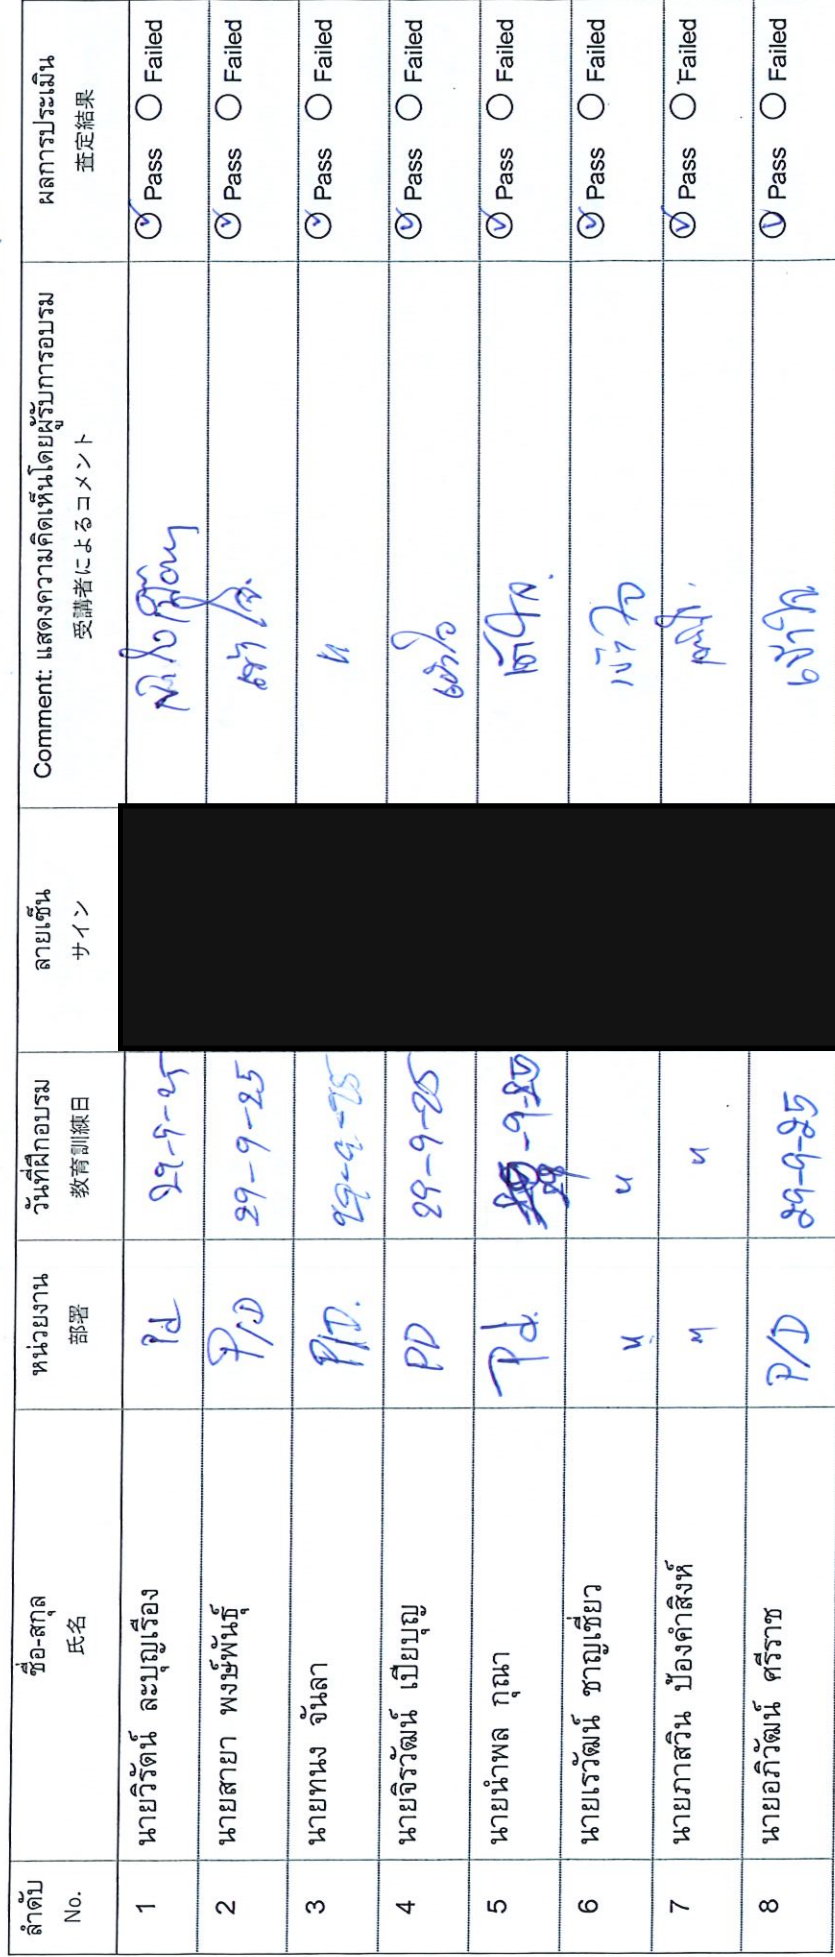 ลำดับ ชื่อ-สกุล หน่วยงาน วันที่ฝึกอบรม ลายเซ็น Comment: แสดงความคิดเห็นโดยผู้รับการอบรม ผลการประเมิน
No. 氏名 部署 教育訓練日 サイン 受講者によるコメント 査定結果
1 นายวิรัตน์ ละบุญเรือง Pd 29-9-25 Pass Failed
2 นายสายา พงษ์พันธุ์ P/D 29-9-25 เข้าใจ Pass Failed
3 นายทนง จันลา P/D. 29-9-25 ท Pass Failed
4 นายจิรวัฒน์ เปียบุญ PD 29-9-25 เข้าใจ Pass Failed
5 นายนำพล กุณา Pd. 29-9-25 เข้าใจ. Pass Failed
6 นายเรวัฒน์ ชาญเชี่ยว น น เข้าใจ Pass Failed
7 นายภาสวิน ป้องคำสิงห์ น Pass Failed
8 นายอภิวัฒน์ ศรีราช P/D 29-9-25 เข้าใจ Pass Failed